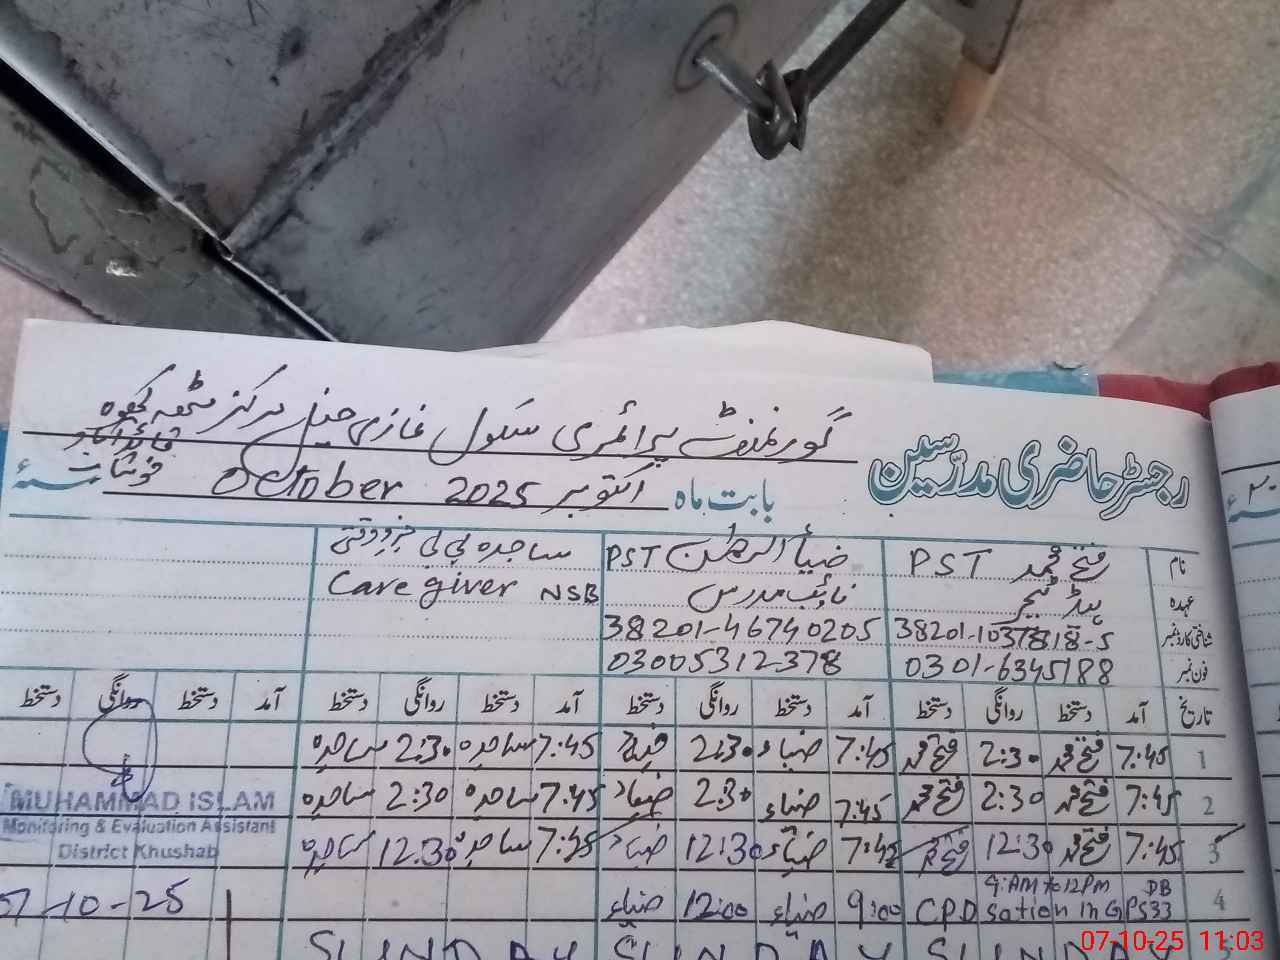 گورنمنٹ پرائمری سکول غازی خیل مرکز مٹھہ
رجسٹر حاضری مدرسین
بابت ماہ اکتوبر 2025 October
نام فتح محمد PST ضیاء الرحمٰن PST ساجدہ بی بی جزوقتی
عہدہ ہیڈ ٹیچر نائب مدرس Care giver NSB
شناختی کارڈ نمبر 38201-1037818-5 38201-46740205
فون نمبر 0301-6345188 03005312378
تاریخ آمد دستخط روانگی دستخط آمد دستخط روانگی دستخط آمد دستخط روانگی دستخط آمد دستخط روانگی دستخط
1 7:45 فتح محمد 2:30 فتح محمد 7:45 ضیاء 2:30 ضیاء 7:45 ساجدہ 2:30 ساجدہ
2 7:45 فتح محمد 2:30 فتح محمد 7:45 ضیاء 2:30 ضیاء 7:45 ساجدہ 2:30 ساجدہ
3 7:45 فتح محمد 12:30 فتح محمد 7:45 ضیاء 12:30 ضیاء 7:45 ساجدہ 12:30 ساجدہ
4 CPD 9:AM to 12PM sation in GPS33 DB 9:00 ضیاء 12:00 ضیاء
5 SUNDAY SUNDAY SUNDAY
MUHAMMAD ISLAM
Monitoring & Evaluation Assistant
District Khushab
07-10-25
07-10-25 11:03